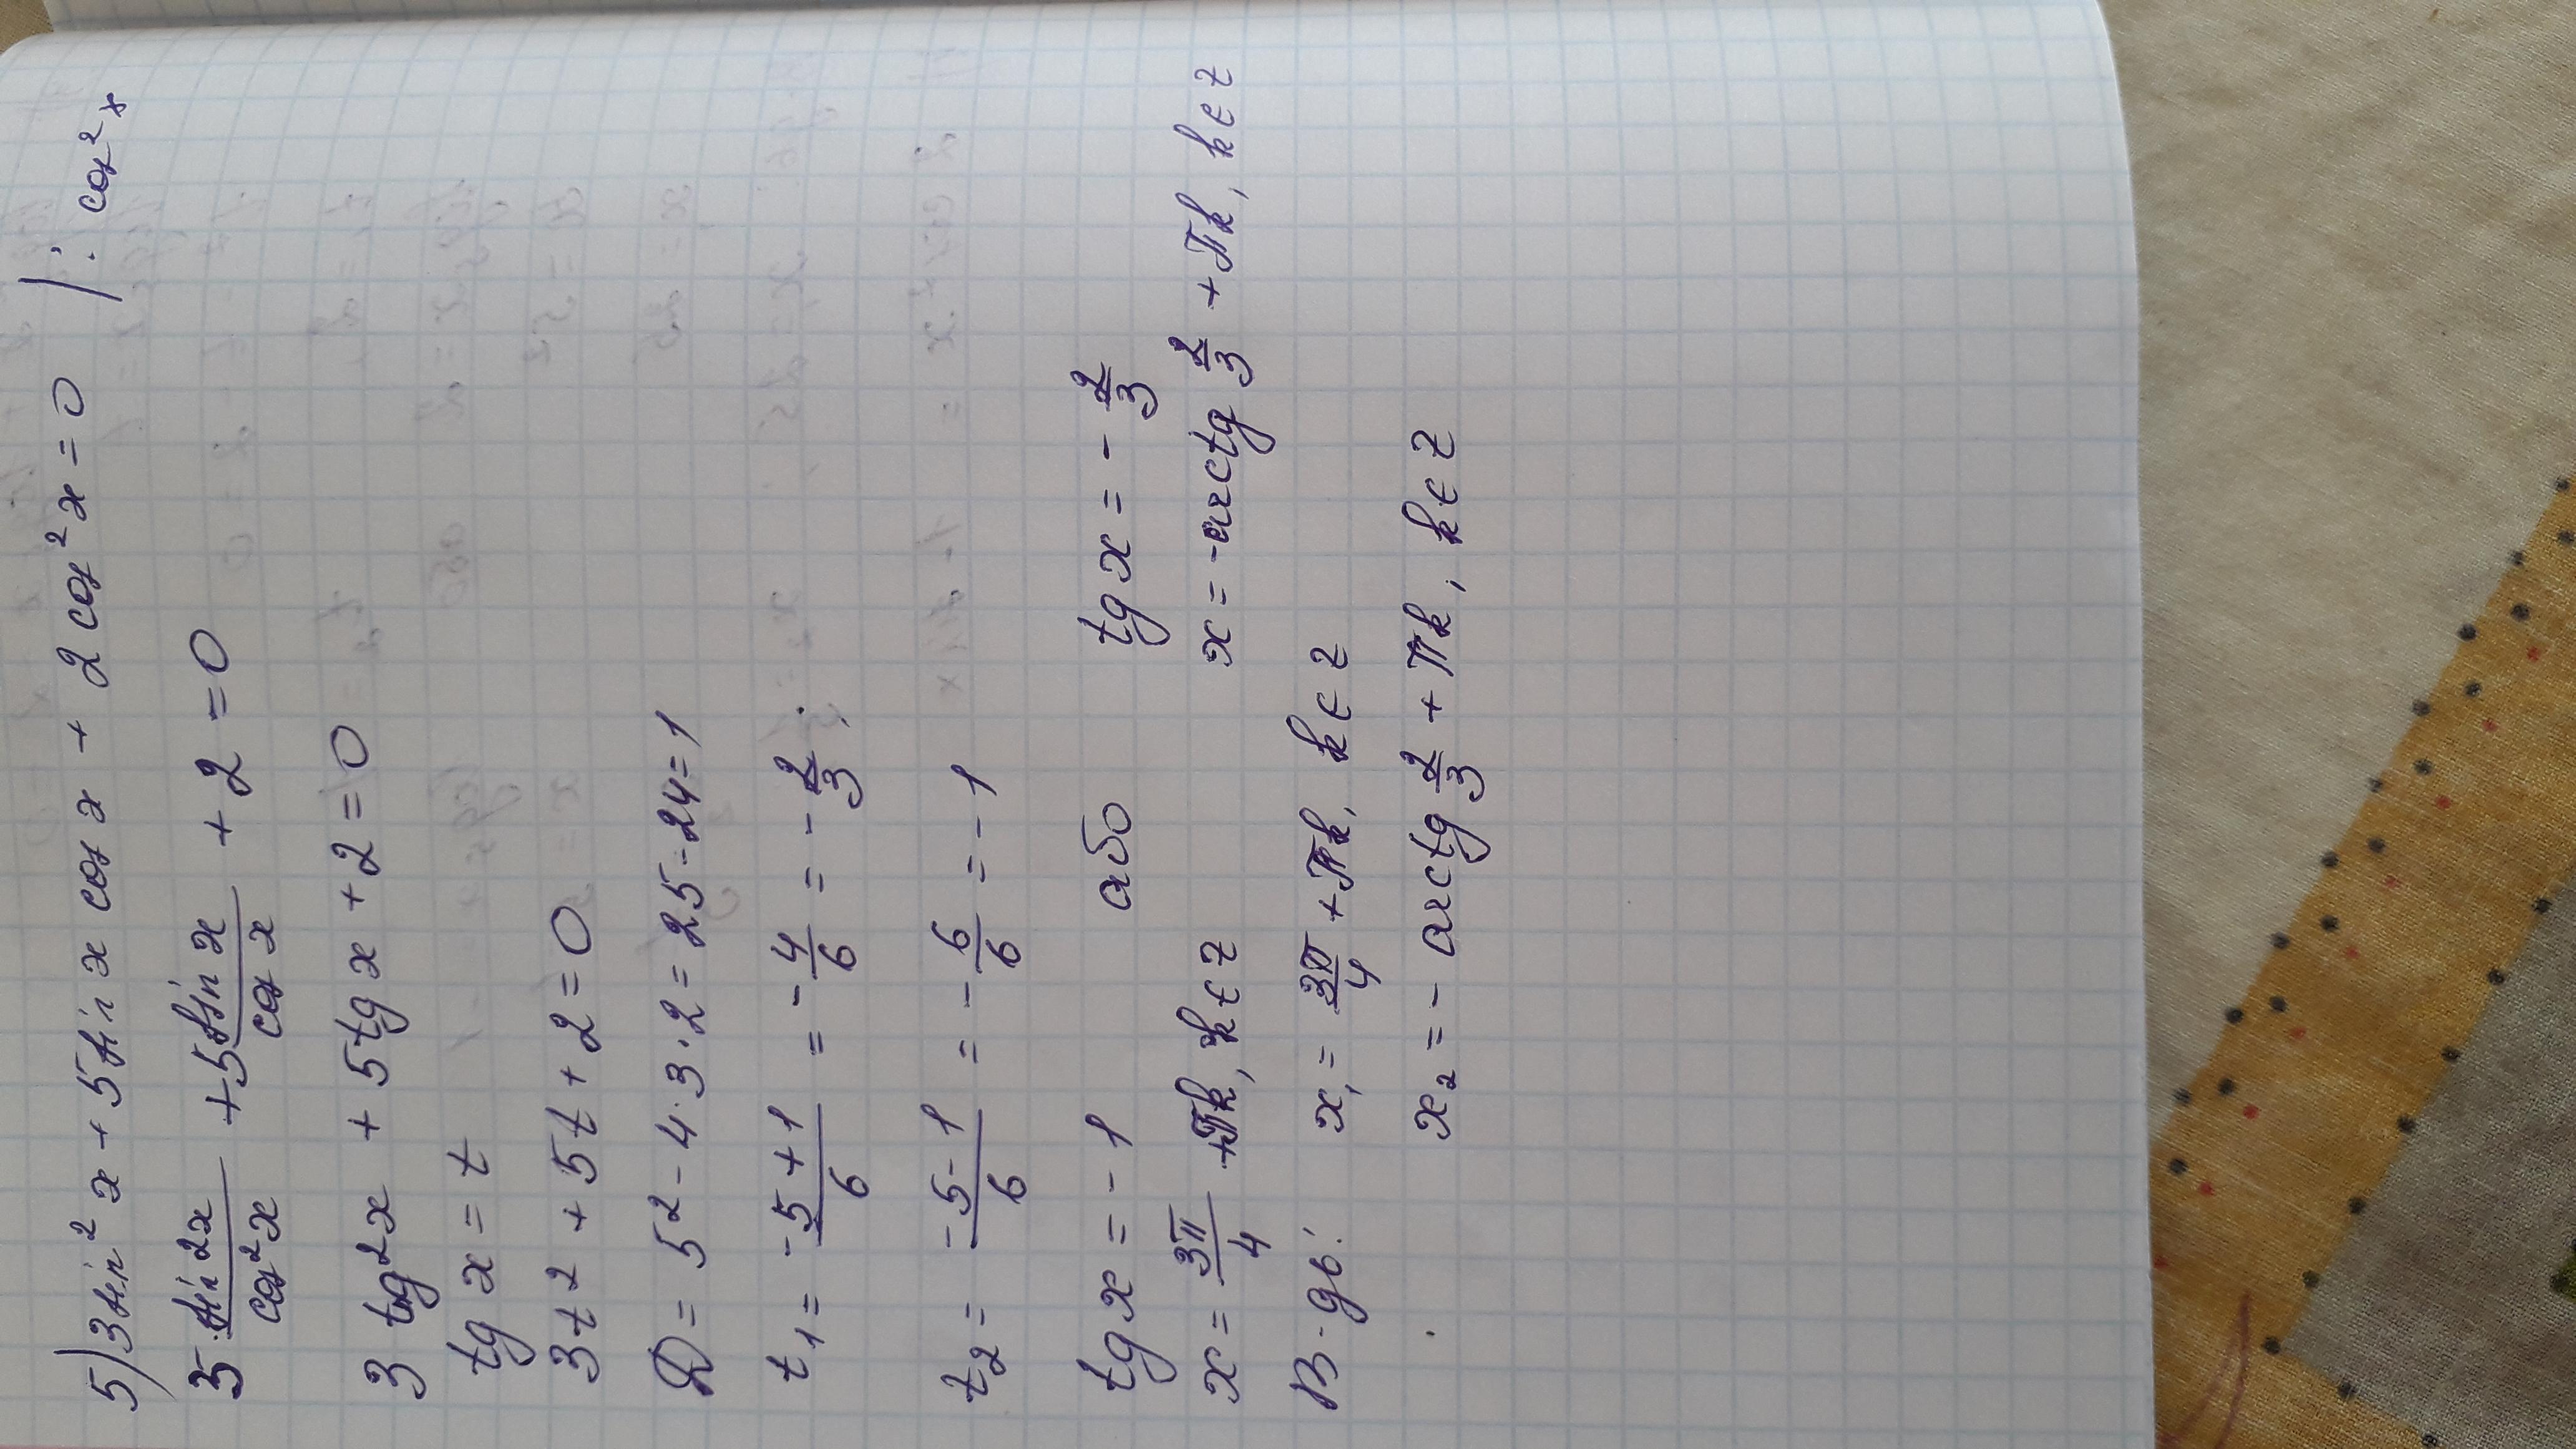 5) 3sin²x + 5sin x cos x + 2cos²x = 0 |: cos²x
3·sin²x/cos²x + 5 sin x/cos x + 2 = 0
3 tg²x + 5tg x + 2 = 0
tg x = t
3t² + 5t + 2 = 0
D = 5² - 4·3·2 = 25-24=1
t₁ = -5+1/6 = -4/6 = -2/3;
t₂ = -5-1/6 = -6/6 = -1
tg x = -1 або tg x = -2/3
x = 3π/4 + πk, k∈Z x = -arctg 2/3 + πk, k∈Z
В-дь: x₁ = 3π/4 + πk, k∈Z
x₂ = - arctg 2/3 + πk, k∈Z